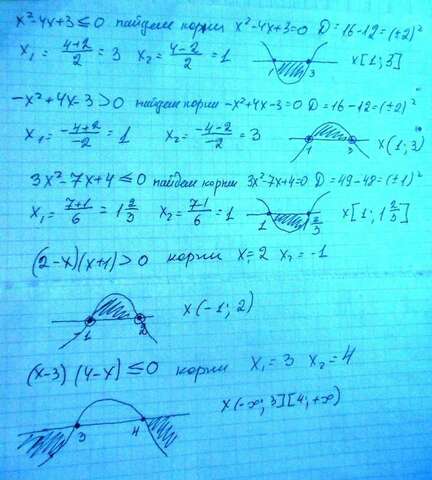 x²-4x+3≤0 найдем корни x²-4x+3=0 D=16-12=(±2)²
x₁=(4+2)/2=3 x₂=(4-2)/2=1 1 3 x[1;3]
-x²+4x-3>0 найдем корни -x²+4x-3=0 D=16-12=(±2)²
x₁=(-4+2)/-2=1 x₂=(-4-2)/-2=3 1 3 x(1;3)
3x²-7x+4≤0 найдем корни 3x²-7x+4=0 D=49-48=(±1)²
x₁=(7+1)/6=1 2/3 x₂=(7-1)/6=1 1 1 2/3 x[1;1 2/3]
(2-x)(x+1)>0 корни x=2 x₂=-1
-1 2 x(-1;2)
(x-3)(4-x)≤0 корни x₁=3 x₂=4
3 4 x(-∞;3][4;+∞)